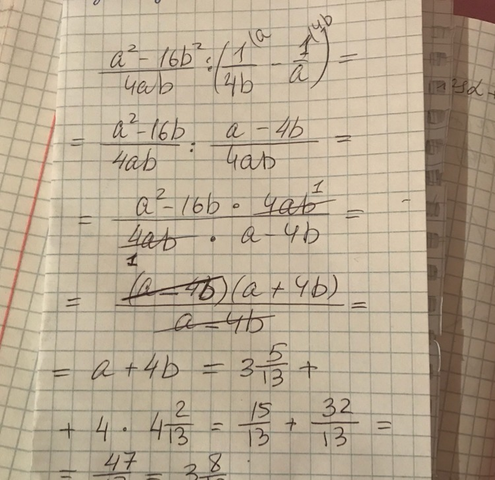 (a² - 16b²)/(4ab) : (1/(4b) \a - 1/a \4b) =
= (a² - 16b)/(4ab) : (a - 4b)/(4ab) =
= (a² - 16b · 4ab 1)/(4ab 1 · a - 4b) =
= ((a - 4b)(a + 4b))/(a - 4b) =
= a + 4b = 3 5/13 +
+ 4 · 4 2/13 = 15/13 + 32/13 =
= 47/ = 3 8/